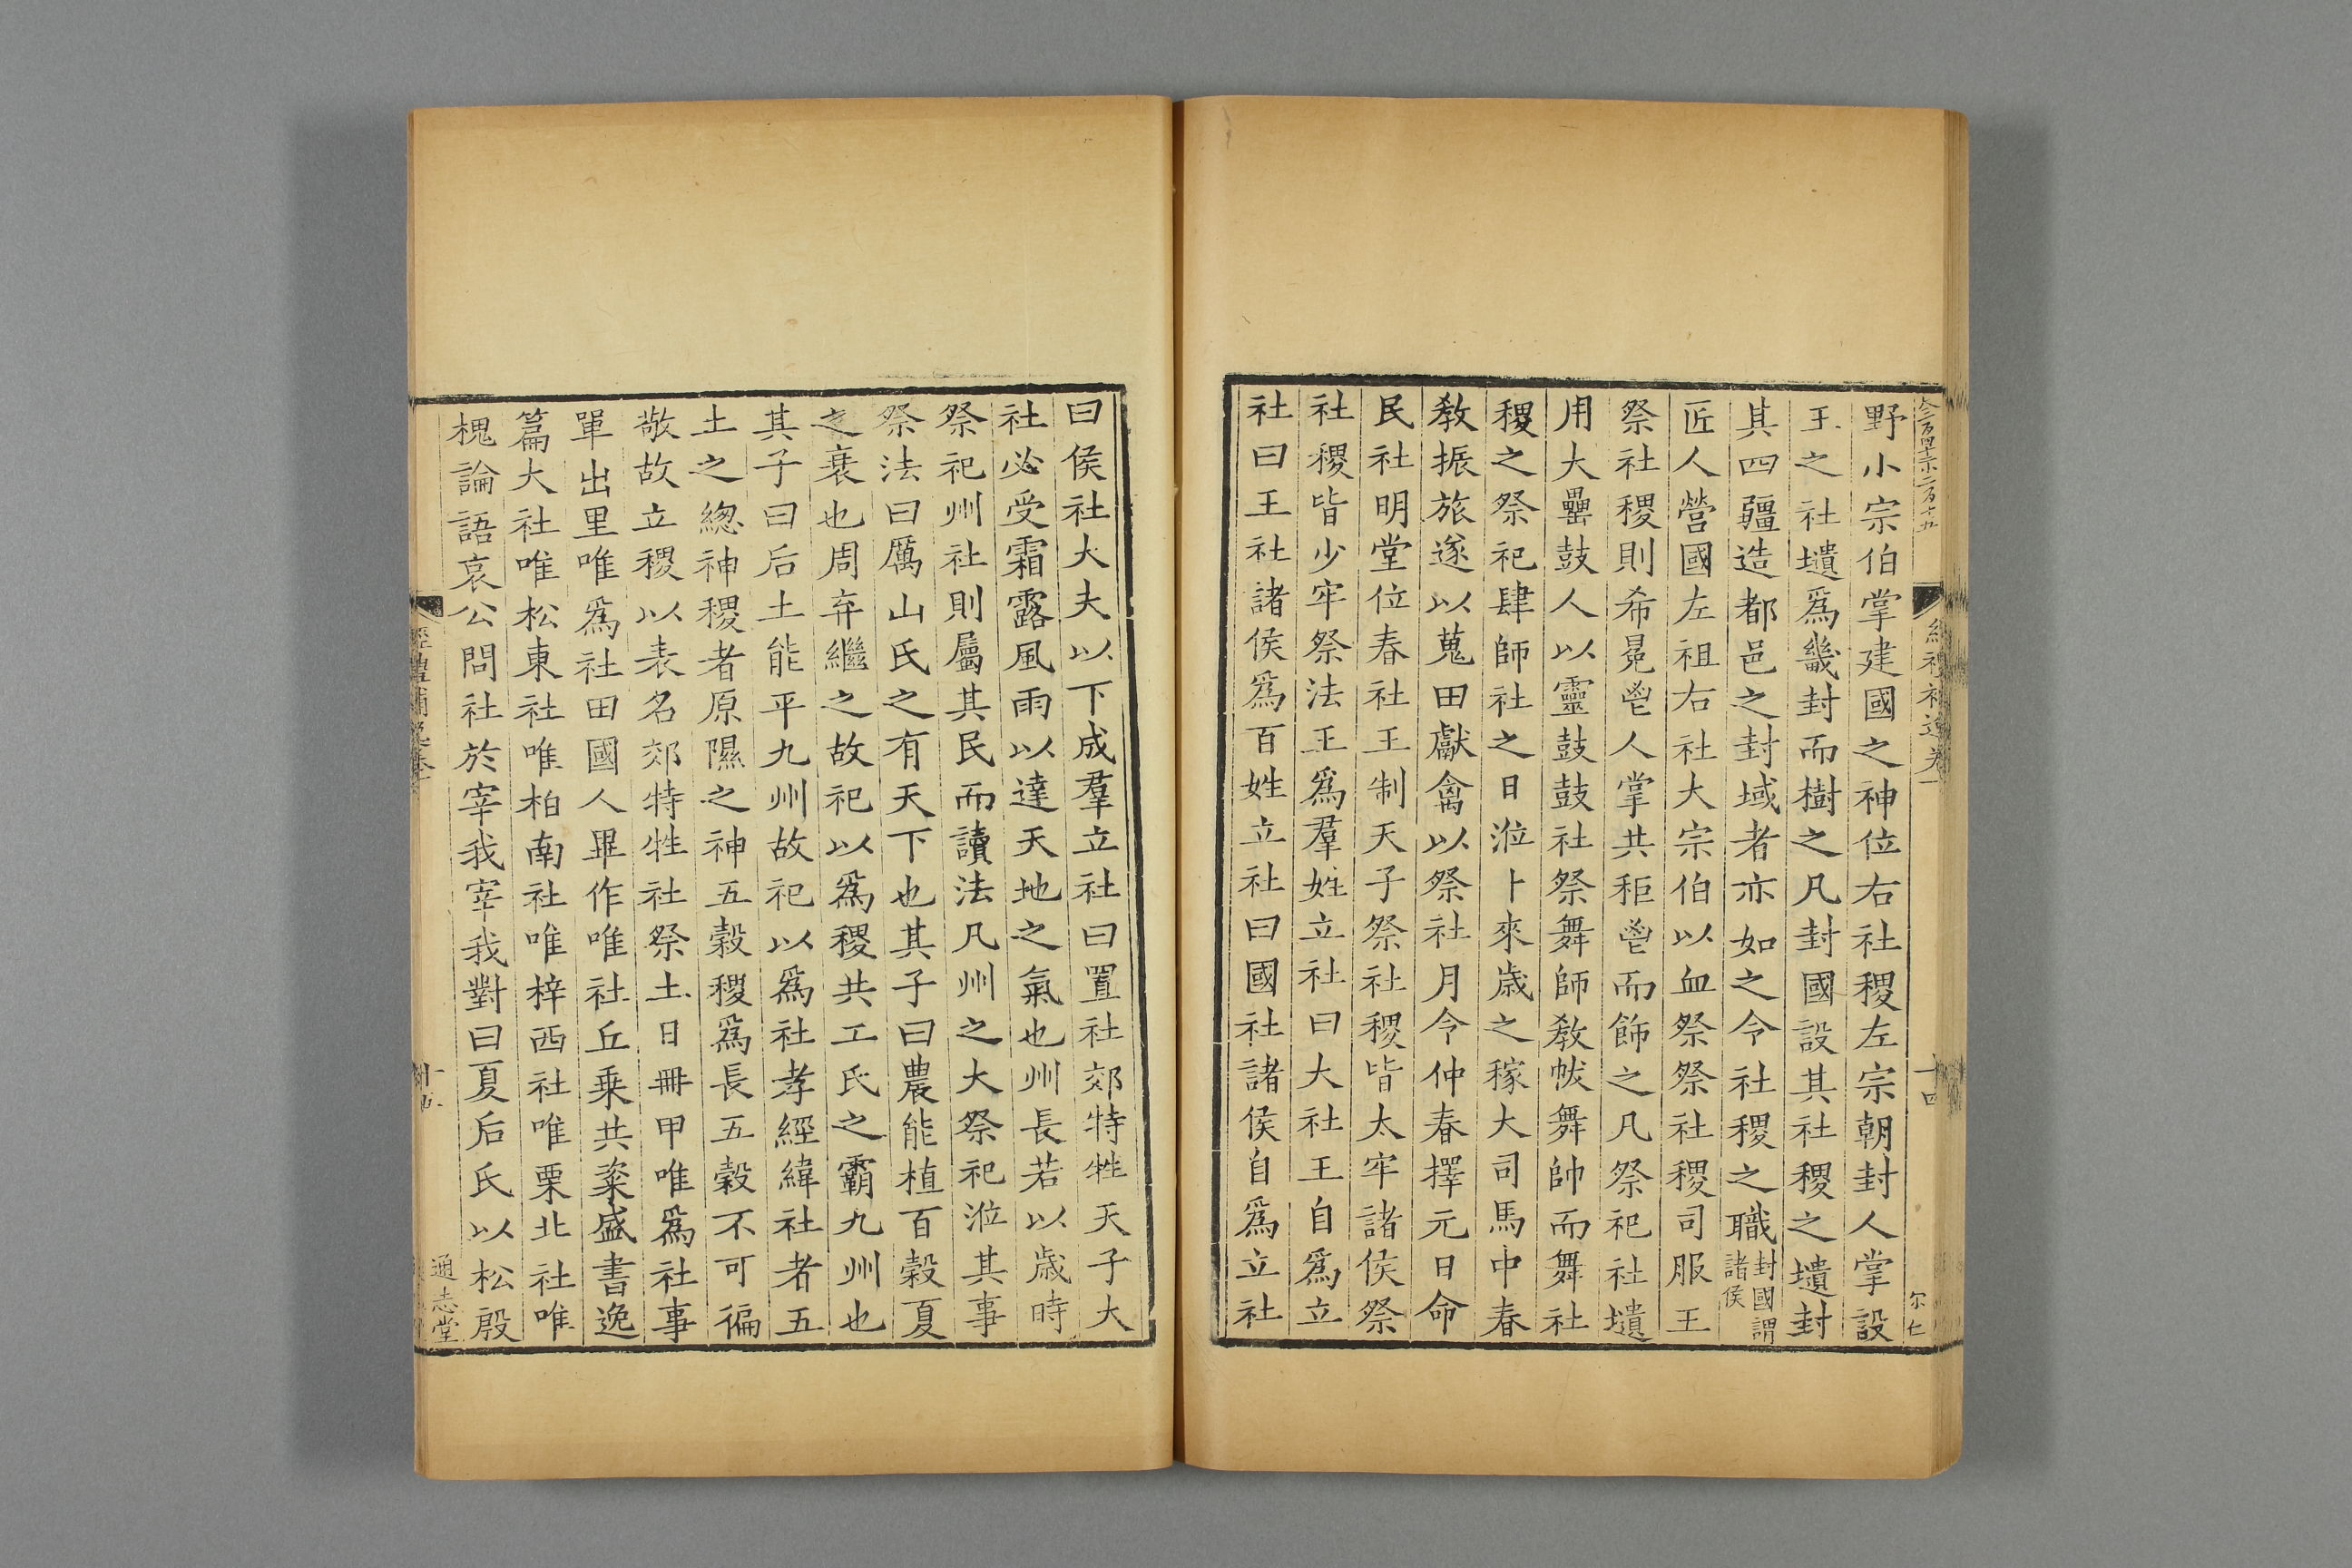 野小宗伯掌建國之神位右社稷左宗朝封人掌設
王之社壝爲畿封而樹之凡封國設其社稷之壝封
其四疆造都邑之封域者亦如之令社稷之職封國謂諸侯
匠人營國左祖右社大宗伯以血祭祭社稷司服王
祭社稷則希冕鬯人掌共秬鬯而飾之凡祭祀社壝
用大罍鼓人以靈鼓鼓社祭舞師教帗舞帥而舞社
稷之祭祀肆師社之日涖卜來歲之稼大司馬中春
教振旅遂以蒐田獻禽以祭社月令仲春擇元日命
民社明堂位春社王制天子祭社稷皆太牢諸侯祭
社稷皆少牢祭法王爲羣姓立社曰大社王自爲立
社曰王社諸侯爲百姓立社曰國社諸侯自爲立社
十四
尔仁
曰侯社大夫以下成羣立社曰置社郊特牲天子大
社必受霜露風雨以達天地之氣也州長若以歲時
祭祀州社則屬其民而讀法凡州之大祭祀涖其事
祭法曰厲山氏之有天下也其子曰農能植百穀夏
之衰也周弃繼之故祀以爲稷共工氏之霸九州也
其子曰后土能平九州故祀以爲社孝經緯社者五
土之總神稷者原隰之神五穀稷爲長五穀不可徧
敬故立稷以表名郊特牲社祭土日用甲唯爲社事
單出里唯爲社田國人畢作唯社丘乗共粢盛書逸
篇大社唯松東社唯柏南社唯梓西社唯栗北社唯
槐論語哀公問社於宰我宰我對曰夏后氏以松殷
通志堂